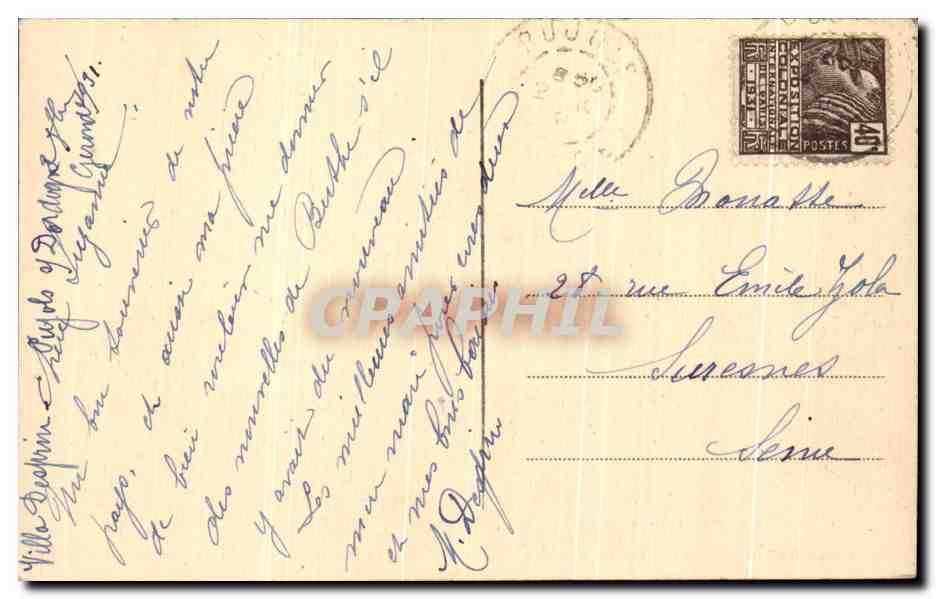 Villa Desprin Pujols s/ Dordogne
Gironde
Un bon souvenir de notre
pays, et aussi ma prière
de bien vouloir me donner
des nouvelles de Berthe s'il
y avait du nouveau
Les meilleures amitiés de
mon mari pour vous deux
et mes bons baisers
M. Desprin
PUJOLS
EXPOSITION
COLONIALE
INTERNATIONALE
DE PARIS
1931
POSTES
40c
Melle Monatte
28 rue Emile Zola
Suresnes
Seine
CPAPHIL